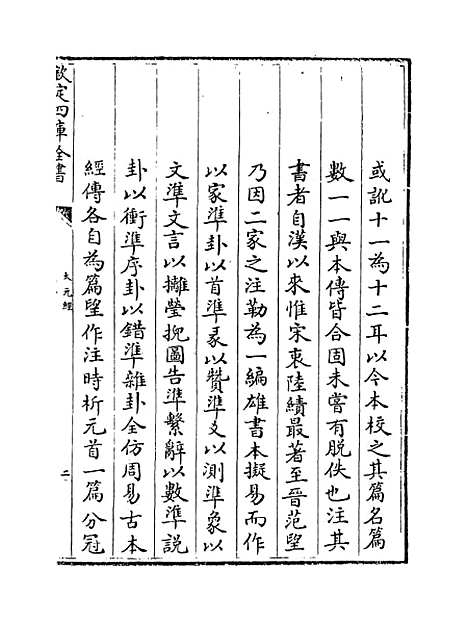 或訛十一為十二耳以今本校之其篇名篇
數一一與本傳皆合固未嘗有脱佚也注其
書者自漢以來惟宋衷陸績最著至晉范望
乃因二家之注勒為一編雄書本擬易而作
以家準卦以首準彖以贊準爻以測準象以
文準文言以攡瑩掜圖告準繫辭以數準說
卦以衝準序卦以錯準雜卦全仿周易古本
經傳各自為篇望作注時析元首一篇分冠
欽定四庫全書
太元經
二